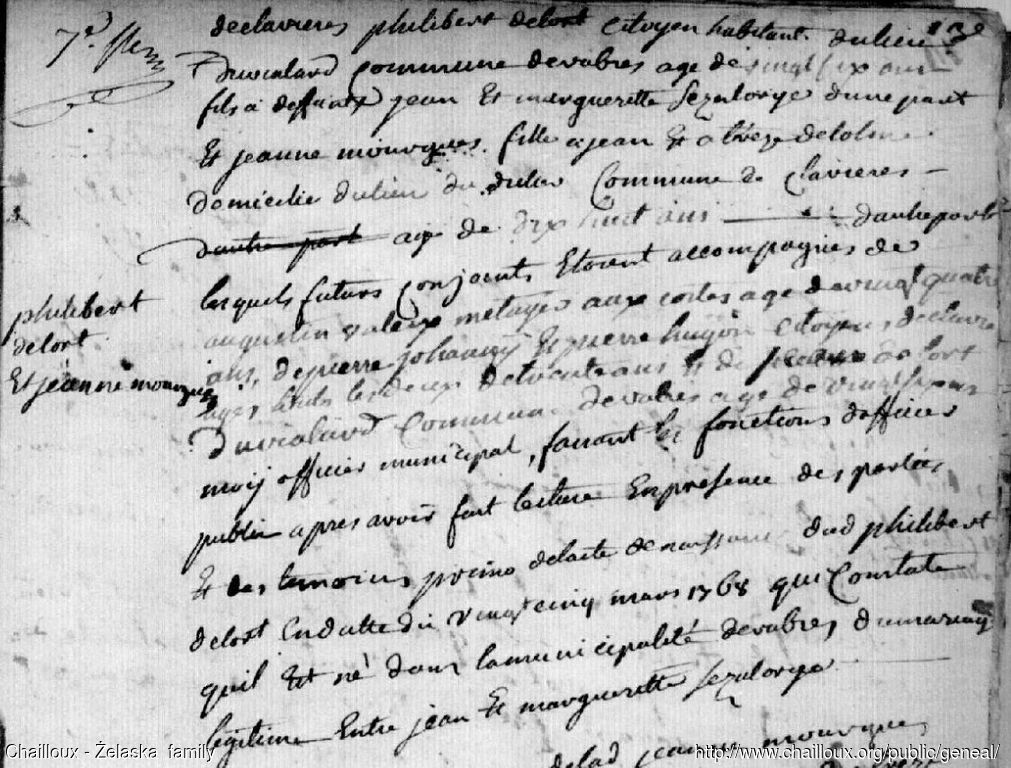 declavieres philibert delort citoyen habitant dulieu
Duvialard commune devabres age de vingt six ans
fils a deffunts jean Et margueritte Sezalorye dune part
Et jeanne mourgues fille a jean Et
Domicilie dulieu du Commune de Clavieres
dautre part age de dix huit ans dautre part
lesquels futurs conjoints Etoient accompagnes de
augustin valeix metayer aux cortes age de vingt quatre
ans, de pierre johanny Et pierre hugon citoyens declaviere
ages touts lesdeux detrente ans Et de delort
Duvialard Commune devabres age de vingt six ans
moy officier municipal, faisant les fonctions dofficier
public apres avoir fait lecture Enpresence des parties
Et des temoins primo delacte denaissance dud philibert
delort Endatte du vingt cinq mars 1768 qui Constate
quil Est né dans lamunicipalité devabres dumariage
legitime Entre jean Et margueritte Sezalorye
delad jeanne mourgues
7e.
philibert
delort
Et jeanne mourgues
Chailloux - Żelaska family
http://www.chailloux.org/public/geneal/